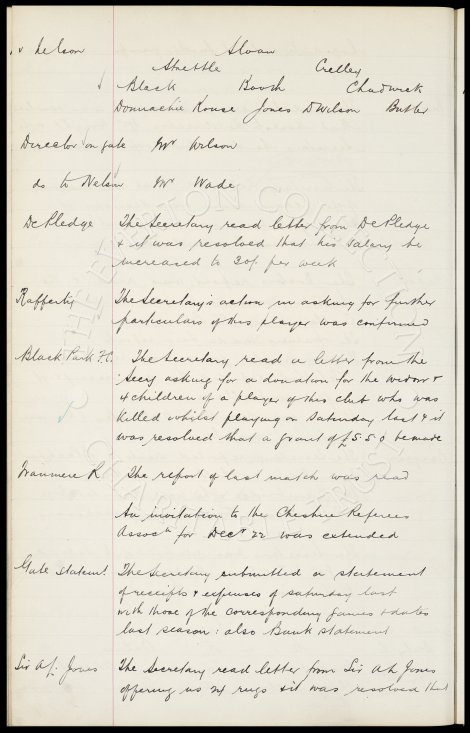 v Nelson Sloan
Strettle Crelley
Black Booth Chadwick
Donnachie Rouse Jones D Wilson Butler
Director on gate Mr Wilson
do to Nelson Mr Wade
De Pledge The Secretary read letter from De Pledge
& it was resolved that his salary be
increased to 20/- per week
Rafferty The Secretary's action in asking for further
particulars of this player was confirmed
Black Park F.C. The Secretary read a letter from the
Secy asking for a donation for the widow &
4 children of a player of this club who was
killed whilst playing on Saturday last & it
was resolved that a grant of £5.5.0 be made
Tranmere R The report of last match was read
An invitation to the Cheshire Referees
Assocn for Decr 22 was extended
Gate Statemt. The Secretary submitted a statement
of receipts & expenses of Saturday last
with those of the corresponding games & dates
last season: also Bank Statement
Sir A L. Jones The Secretary read letter from Sir A L Jones
offering us 24 rugs & it was resolved that
THE EVERTON COLLECTION
CHARITABLE TRUST